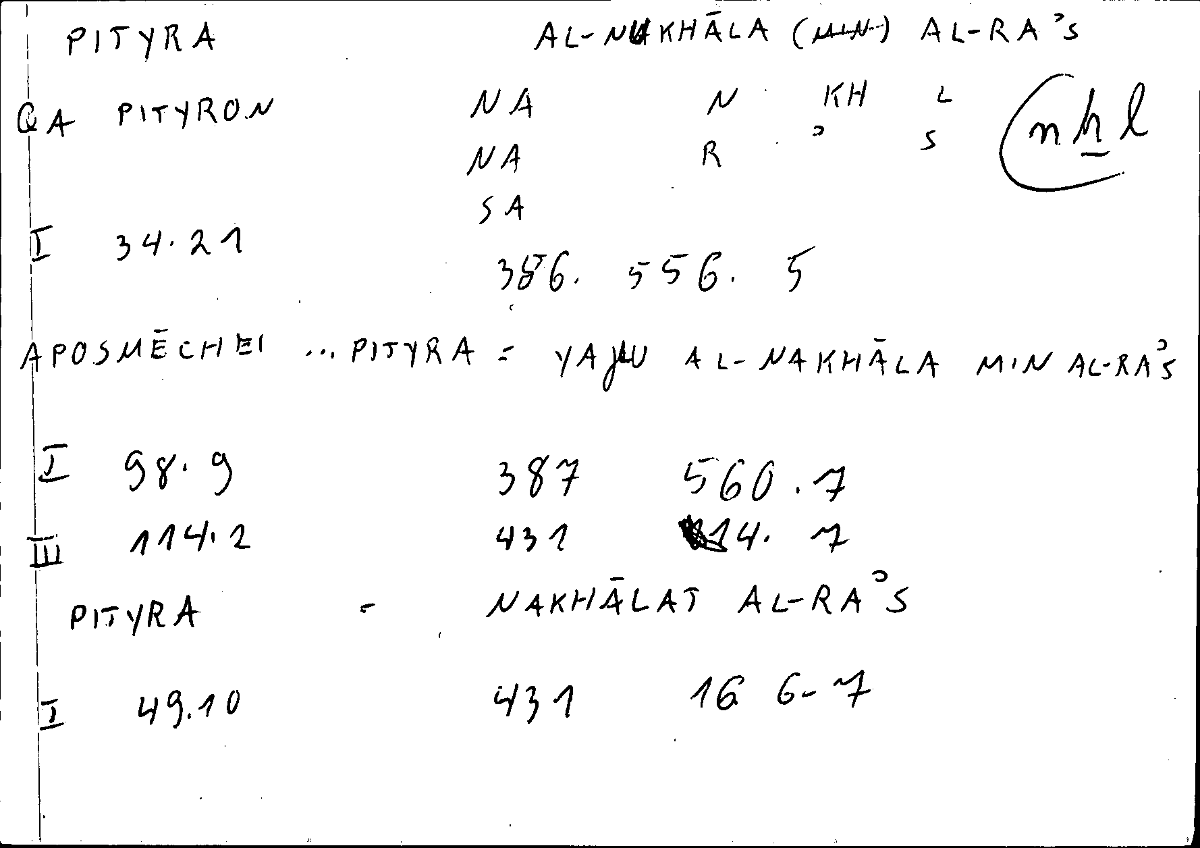 PITYRA AL-NUKHĀLA (MIN) AL-RAʾS
QA PITYRON NA N KH L nẖl
NA R ʾ S
SA
I 34.21
386. 556. 5
APOSMĒCHEI ... PITYRA = AL-NAKHĀLA MIN AL-RAʾS
I 98.9 387 560.7
III 114.2 431 14. 7
PITYRA = NAKHĀLAT AL-RAʾS
I 49.10 431 16 6-7